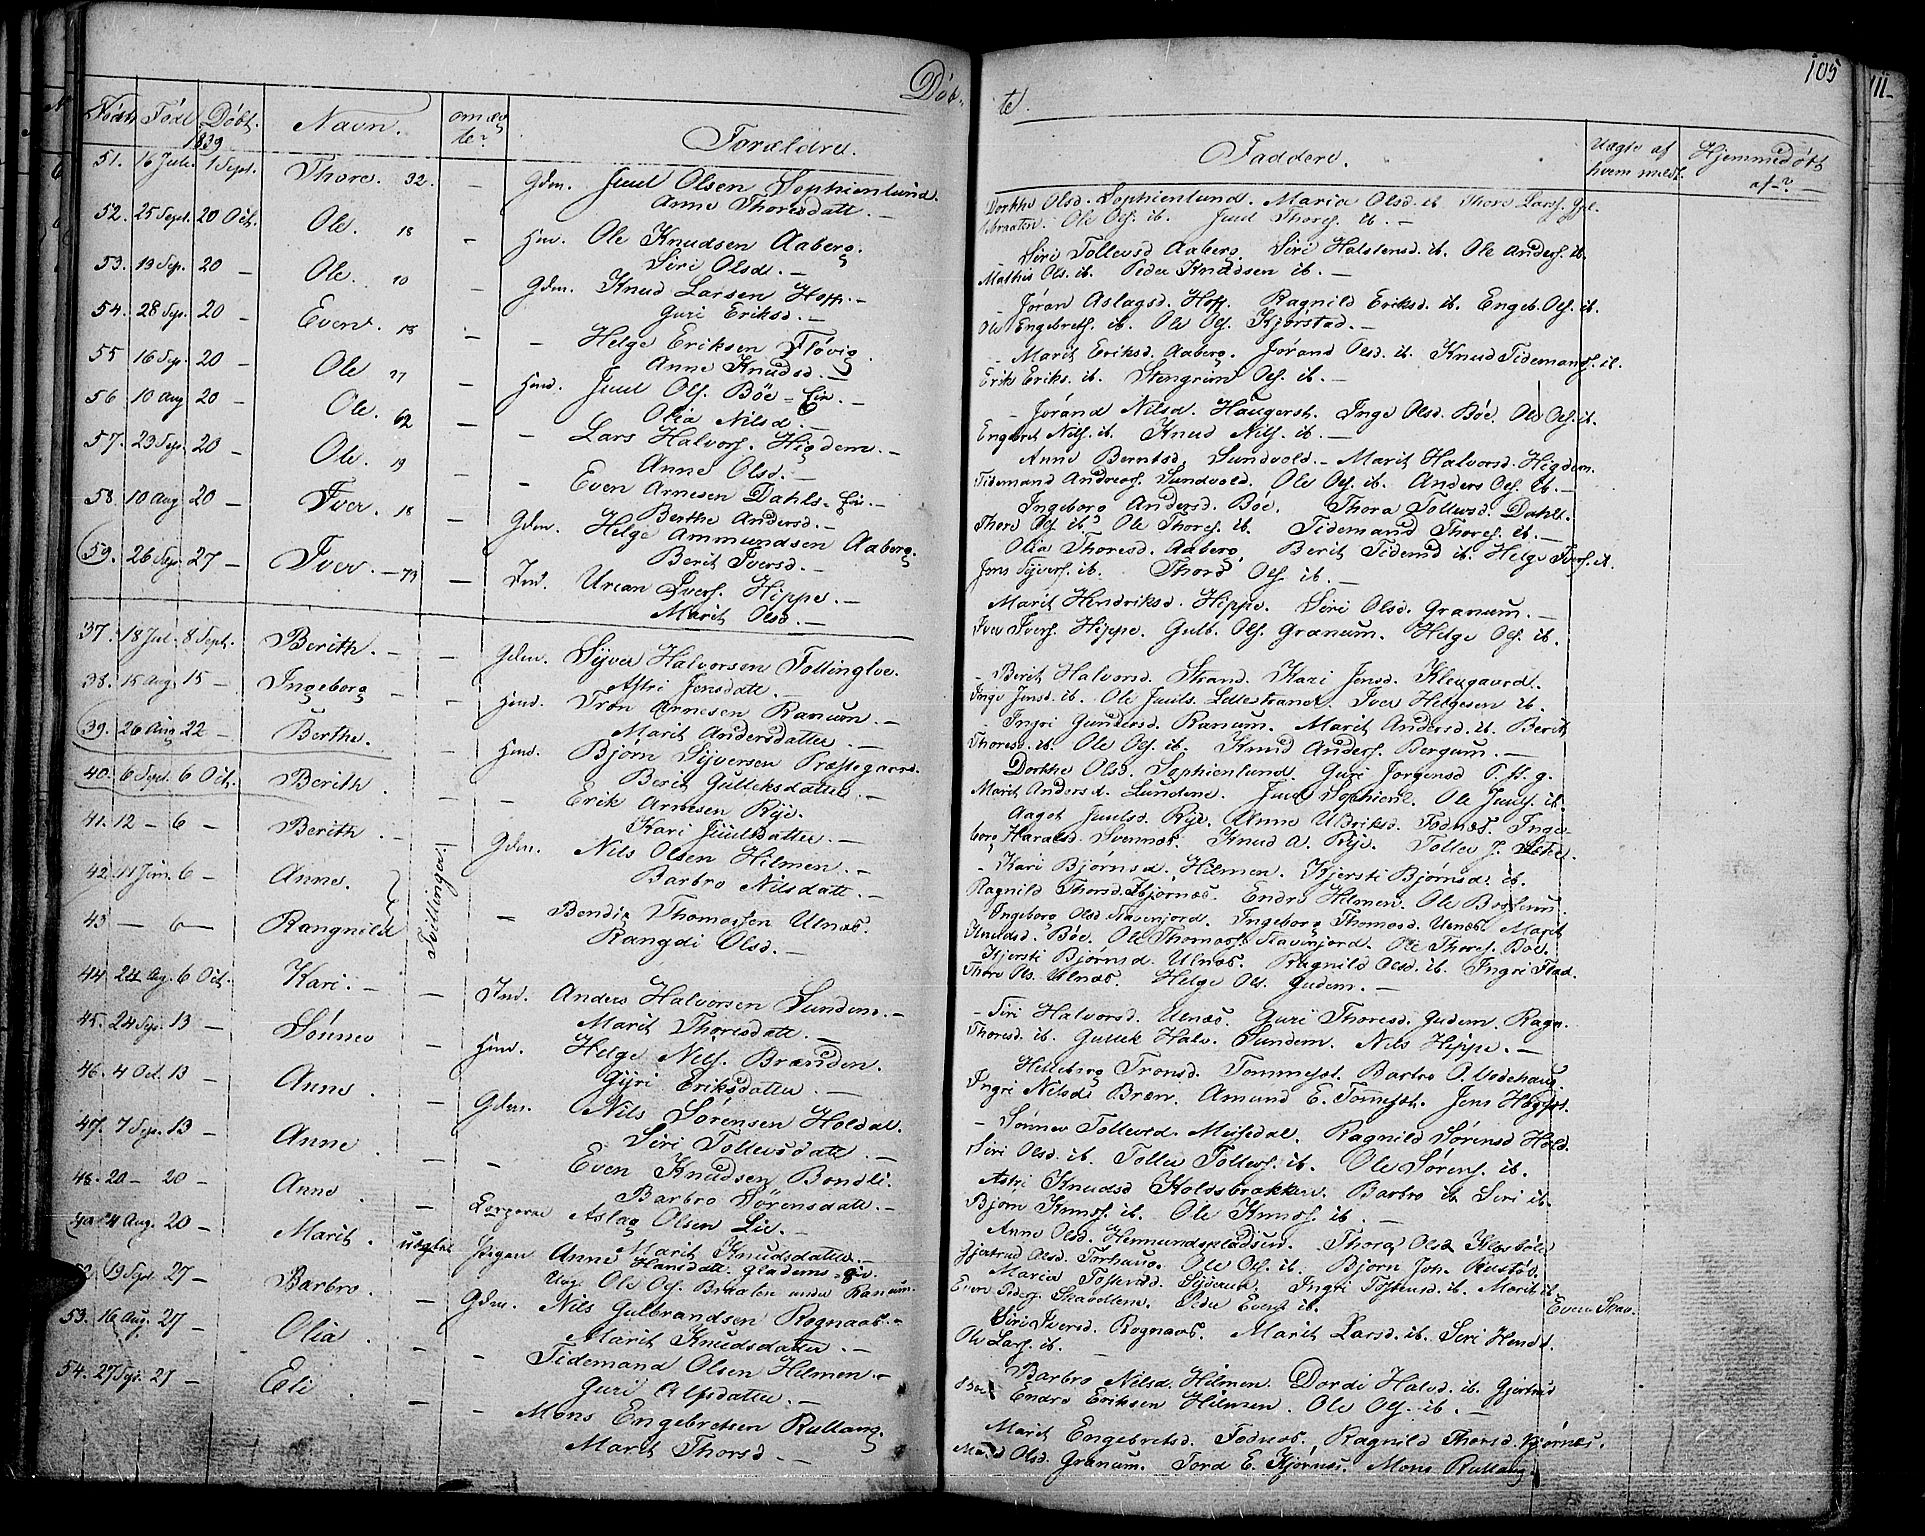 Døb-
te.
105
111-
Fødte Født Døbt. Navn. om æg te? Forældre.
1839
Faddere. Uægte af hvem meldt. Hjemmedøbt af -?
51. 16 Jule. 1 Sept. Thore. 32. - Gdm. Juul Olsen Sophienlund.
Anne Thoresdatt. -
Dorthe Olsd. Sophienlund. Maria Olsd. ib. Thore Lars.
Braaten. Ole Ols. ib. Juul Thores. ib. -
52. 25 Sept. 20 Oct. Ole. 18 - Hmd. Ole Knudsen Aaberg.
Siri Olsd. -
Siri Tollevsd Aaberg. Siri Halstensd. ib. Ole Anders. ib.
Mathis Ols. ib. Peder Knudsen ib. -
53. 19 Sep. 20 - Ole. 10 - Gdm. Knud Larsen Hoff. -
Guri Eriksd. -
Jøran Aslagsd. Hoff. Ragnild Eriksd. ib. Engeb. Ols. ib.
Ole Engebrets. ib. Ole Ols. Kjørstad. -
54. 28 Sep. 20 - Even. 18 - - Helge Eriksen Fløvig.
Anne Knudsd. -
- Marit Eriksd. Aaberg. Jørand Olsd. ib. Knud Tidemands. ib.
Erik Eriks. ib. Stengrim Ols. ib. -
55 16 Sep. 20 - Ole 27 - Hmd. Juul Ols. Bøe - Eie. -
Olia Nilsd. -
- Jørand Nilsd. Haugerst. Inge Olsd. Bøe. Ole Ols. ib.
Engebret Nils. ib. Knud Nils. ib. -
56 10 Aug 20 - Ole. 62 - - Lars Halvors. Higdem. -
Anne Olsd. -
Anne Berntsd. Sundvold. - Marit Halvorsd. Higdem.
Tidemand Andreas. Sundvold. Ole Ols. ib. Anders Ols. ib. -
57. 23 Sep. 20 - Ole. 19 - - Even Arnesen Dahls - Eie. -
Berthe Andersd. -
Ingeborg Andersd. Bøe. Thora Tollevsd. Dahls.
Thore Ols. ib. Ole Thores. ib. Tidemand Thores. ib. -
58. 10 Aug 20 - Iver. 18 - Gdm. Helge Ammundsen Aaberg.
Berit Iversd. -
Olia Thoresd. Aaberg. Berit Tidemd ib. Helge Ivers. ib.
Jens Syvers. ib. Thord Ols. ib. -
59. 26 Sept 27 - Iver. - 73 - Ind. Urian Ivers. Hippe. -
Marit Olsd. -
Marit Hendriksd. Hippe. Siri Olsd. Granum. -
Iver Ivers. Hippe. Gulb. Ols. Granum. Helge Ols. ib.
37. 18 Jul. 8 Sept. Berith. - - Gdm. Syver Halvorsen Tollinglve.
Astri Jensdatt. -
- Berit Halvorsd. Strand. Kari Jensd. Klevgaard.
Inge Jensd. ib. Ole Juuls. Lillestrand. Iver Helgesen ib.
38. 15 Aug 15 - Ingeborg - Hmd. Tron Arnesen Ranum. -
Marit Andersdatter. -
- Ingri Gundersd. Ranum. Marit Andersd. ib. Berit
Thoresd. ib. Ole Ols. ib. Knud Anders. Bergum. -
39. 26 Aug 22 - Berthe. - Hmd. Bjørn Syversen Præstegaard.
Berit Gulliksdatter. -
Dorthe Olsd. Sophienlund. Guri Jorgensd P. H. g.
Marit Andersd. Lundene. Juul Sophienl. Ole Juuls. ib.
40. 6 Sept. 6 Oct. Berith. - - Erik Arnesen Rye.
Kari Juulsdatter. -
Aagot Juulsd. Rye. Anne Ulriksd. Fodnæs. Inge-
borg Haraldsd. Svennæs. Knud A. Rye. Tollev J.
41. 12 - 6 - Berith. - - Gdm. Nils Olsen Hilmen. -
Barbro Nilsdatt. -
- Kari Bjørnsd. Hilmen. Kjersti Bjørnsd. ib.
Ragnild Thorsd. Kjørnæs. Endre Hilmen. Ole
42. 11 Juni. 6 - Anne.
43 - 6 - Rangnild
Tvillinger.
- Bendix Thomassen Ulnæs.
Rangdi Olsd. -
Ingeborg Olsd. Stavenjord. Ingeborg Thomasd. Ulnæs. Marit
Knudsd. Bøe. Ole Thomas. Stavenjord. Ole Thores. Bøe.
Kjersti Bjørnsd Ulnæs. Ragnild Olsd. ib. Ingri Flad.
Thore Ols. Ulnæs. Helge Ols. Gudem. -
44. 24 Aug. 6 Oct. Kari. - - Ind. Anders Halvorsen Sundem. -
Marit Thoresdatt. -
- Siri Halvorsd. Ulnæs. Guri Thoresd. Gudem. Ragn.
Thoresd. ib. Gullik Halv. Sundem. Nils Hippe. -
45. 24 Sep. 13 - Sønnev - Hmd. Helge Nils. Brænden.
Gyri Eriksdatter. -
Helleborg Tronsd. Tommesst. Barbro P. Vedehaug.
Ingri Nilsd. Bræn. Amund E. Tomesst. Jens
46. 4 Oct. 13 - Anne. - Gdm. Nils Sørensen Holdal.
Siri Tollevsdatt. -
- Sønnev Tollevsd. Misedal. Ragnild Sørensd Hold.
Siri Olsd. ib. Tollev Tollevs. ib. Ole Sørens. ib.
47. 7 Sep. 13 - Anne. - - Even Knudsen Bondli.
Barbro Sørensdatt. -
Astri Knudsd Holdsbrækken. Barbro ib Siri ib.
Bjørn Knuds. ib. Ole Knuds. ib. -
48. 20 - 20 - Anne. - Corporal Aslag Olsen Lie. -
Marit Knudsdatter. -
Anne Olsd. Hermundspladsen. Thora Olsd
Gjertrud Olsd. Torhaug. Ole Ols. ib. Bjørn Joh. Rustøe.
4 Aug. 20 - Marit. uægte Anne Hansdatt. Gladem - Eie.
Ung. Ole Ols. Braaten under Ranum.
Maria Tostensd. Ingri Tostensd. ib. Marit ib.
Even Peders. Skavellene. Peder Evens. ib. Even Skav.
19 Sept. 27 - Barbro. - Gdm. Nils Gulbrandsen Rognaas. -
Marit Knudsdatter. -
Siri Iversd. Rognaas. Marit Larsd. ib. Siri Hend.
Ole Lars. ib.
53. 16 Aug. 27 - Olia. - - Tidemand Olsen Hilmen. -
Guri Alfsdatter. -
Barbro Nilsd. Hilmen. Dordi Halvd. ib. Gjertrud
Bøe. Endre Eriksen Hilmen. Ole Ols. ib. -
54. 27 Sep. 27 - Eli. - - Mons Engebretsen Rullang.
Marit Thorsd. -
Marit Engebretsd. Fodnæs. Ragnild Thorsd. Kjørnæs.
Olsd. Granum. Tord E. Kjørnæs. Mons Rullang.